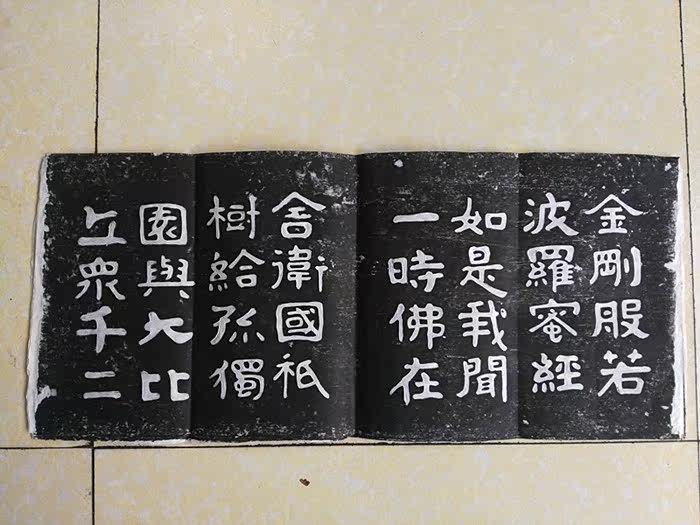 金剛般若
波羅蜜經
如是我聞
一時佛在
舍衛國祇
樹給孤獨
園與大比
丘眾千二